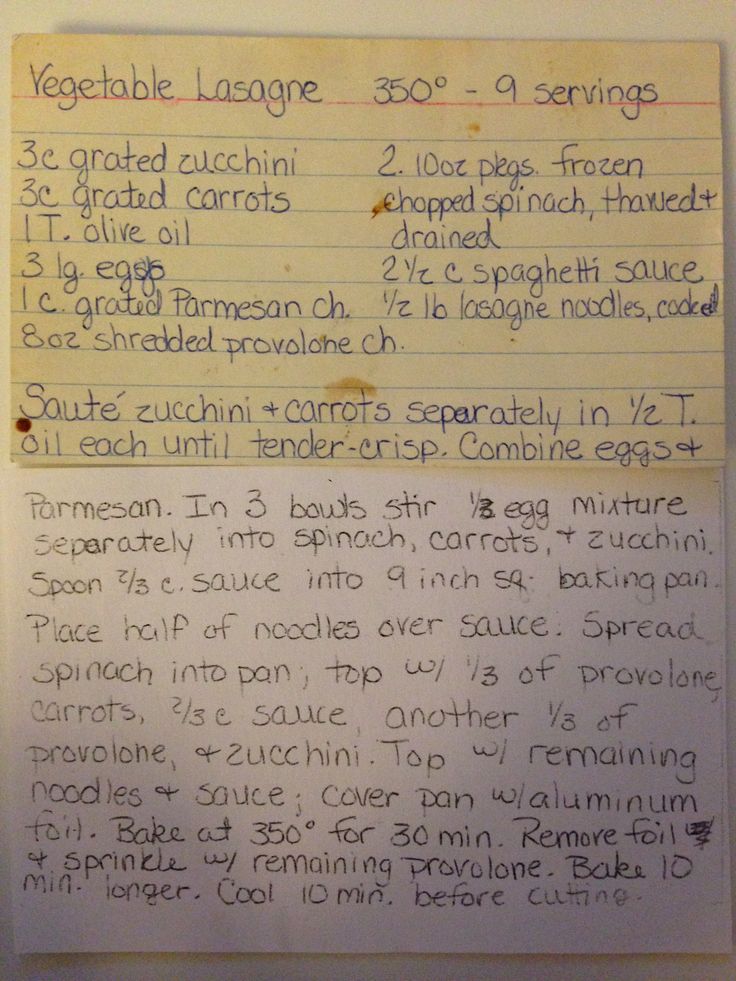 Vegetable Lasagne 350° - 9 servings
3c grated zucchini
3c grated carrots
1 T. olive oil
3 lg. eggs
1 c. grated Parmesan ch.
8oz shredded provolone ch.
2. 10oz pkgs. frozen
chopped spinach, thawed +
drained
2 1/2 c spaghetti sauce
1/2 lb lasagne noodles, cooked
Sauté zucchini + carrots seperately in 1/2 T.
oil each until tender-crisp. Combine eggs +
Parmesan. In 3 bowls stir 1/3 egg mixture
seperately into spinach, carrots, + zucchini.
Spoon 2/3 c. sauce into 9 inch sq. baking pan.
Place half of noodles over sauce. Spread
spinach into pan; top w/ 1/3 of provolone,
carrots, 2/3 c sauce, another 1/3 of
provolone, + zucchini. Top w/ remaining
noodles + sauce; cover pan w/aluminum
foil. Bake at 350° for 30 min. Remove foil
+ sprinkle w/ remaining provolone. Bake 10
min. longer. Cool 10 min. before cutting.